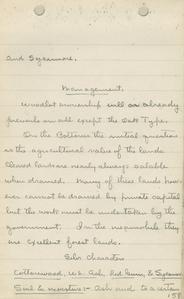 and Sycamore.
Management.
Woodlot ownership will or already
prevails on all except the Oak Type.
On the Bottoms the initial question
is the agricultural value of the lands
Cleared lands are nearly always salable
when drained. Many of these lands how-
ever cannot be drained by private capital
but the work must be undertaken by the
government. In the meanwhile they
are excellent forest lands.
Silv. characters
Cottonwood, W. & Ash, Red Gum, & Sycamore
Soil & moisture:- Ash and to a certain